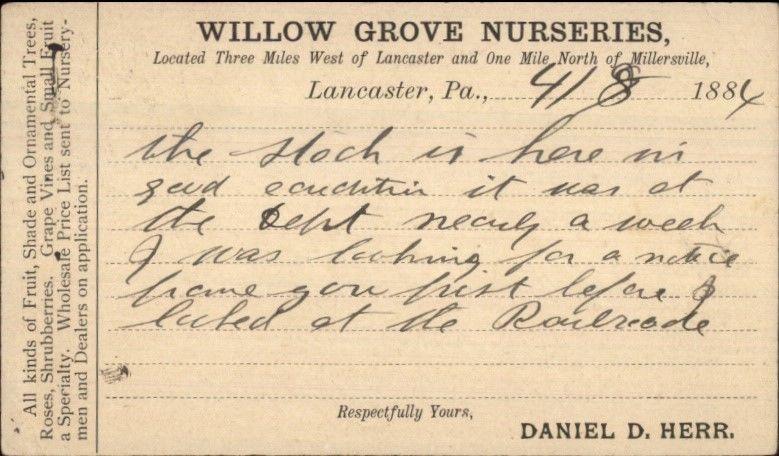 All kinds of Fruit, Shade and Ornamental Trees,
Roses, Shrubberries. Grape Vines and Small Fruit
a Specialty. Wholesale Price List sent to Nursery-
men and Dealers on application.
WILLOW GROVE NURSERIES,
Located Three Miles West of Lancaster and One Mile North of Millersville,
Lancaster, Pa., 4/8 1884
the stock is here in
good condition it was at
the Dept nearly a week
I was looking for a notice
frome you first before I
looked at the Railroade
Respectfully Yours,
DANIEL D. HERR.